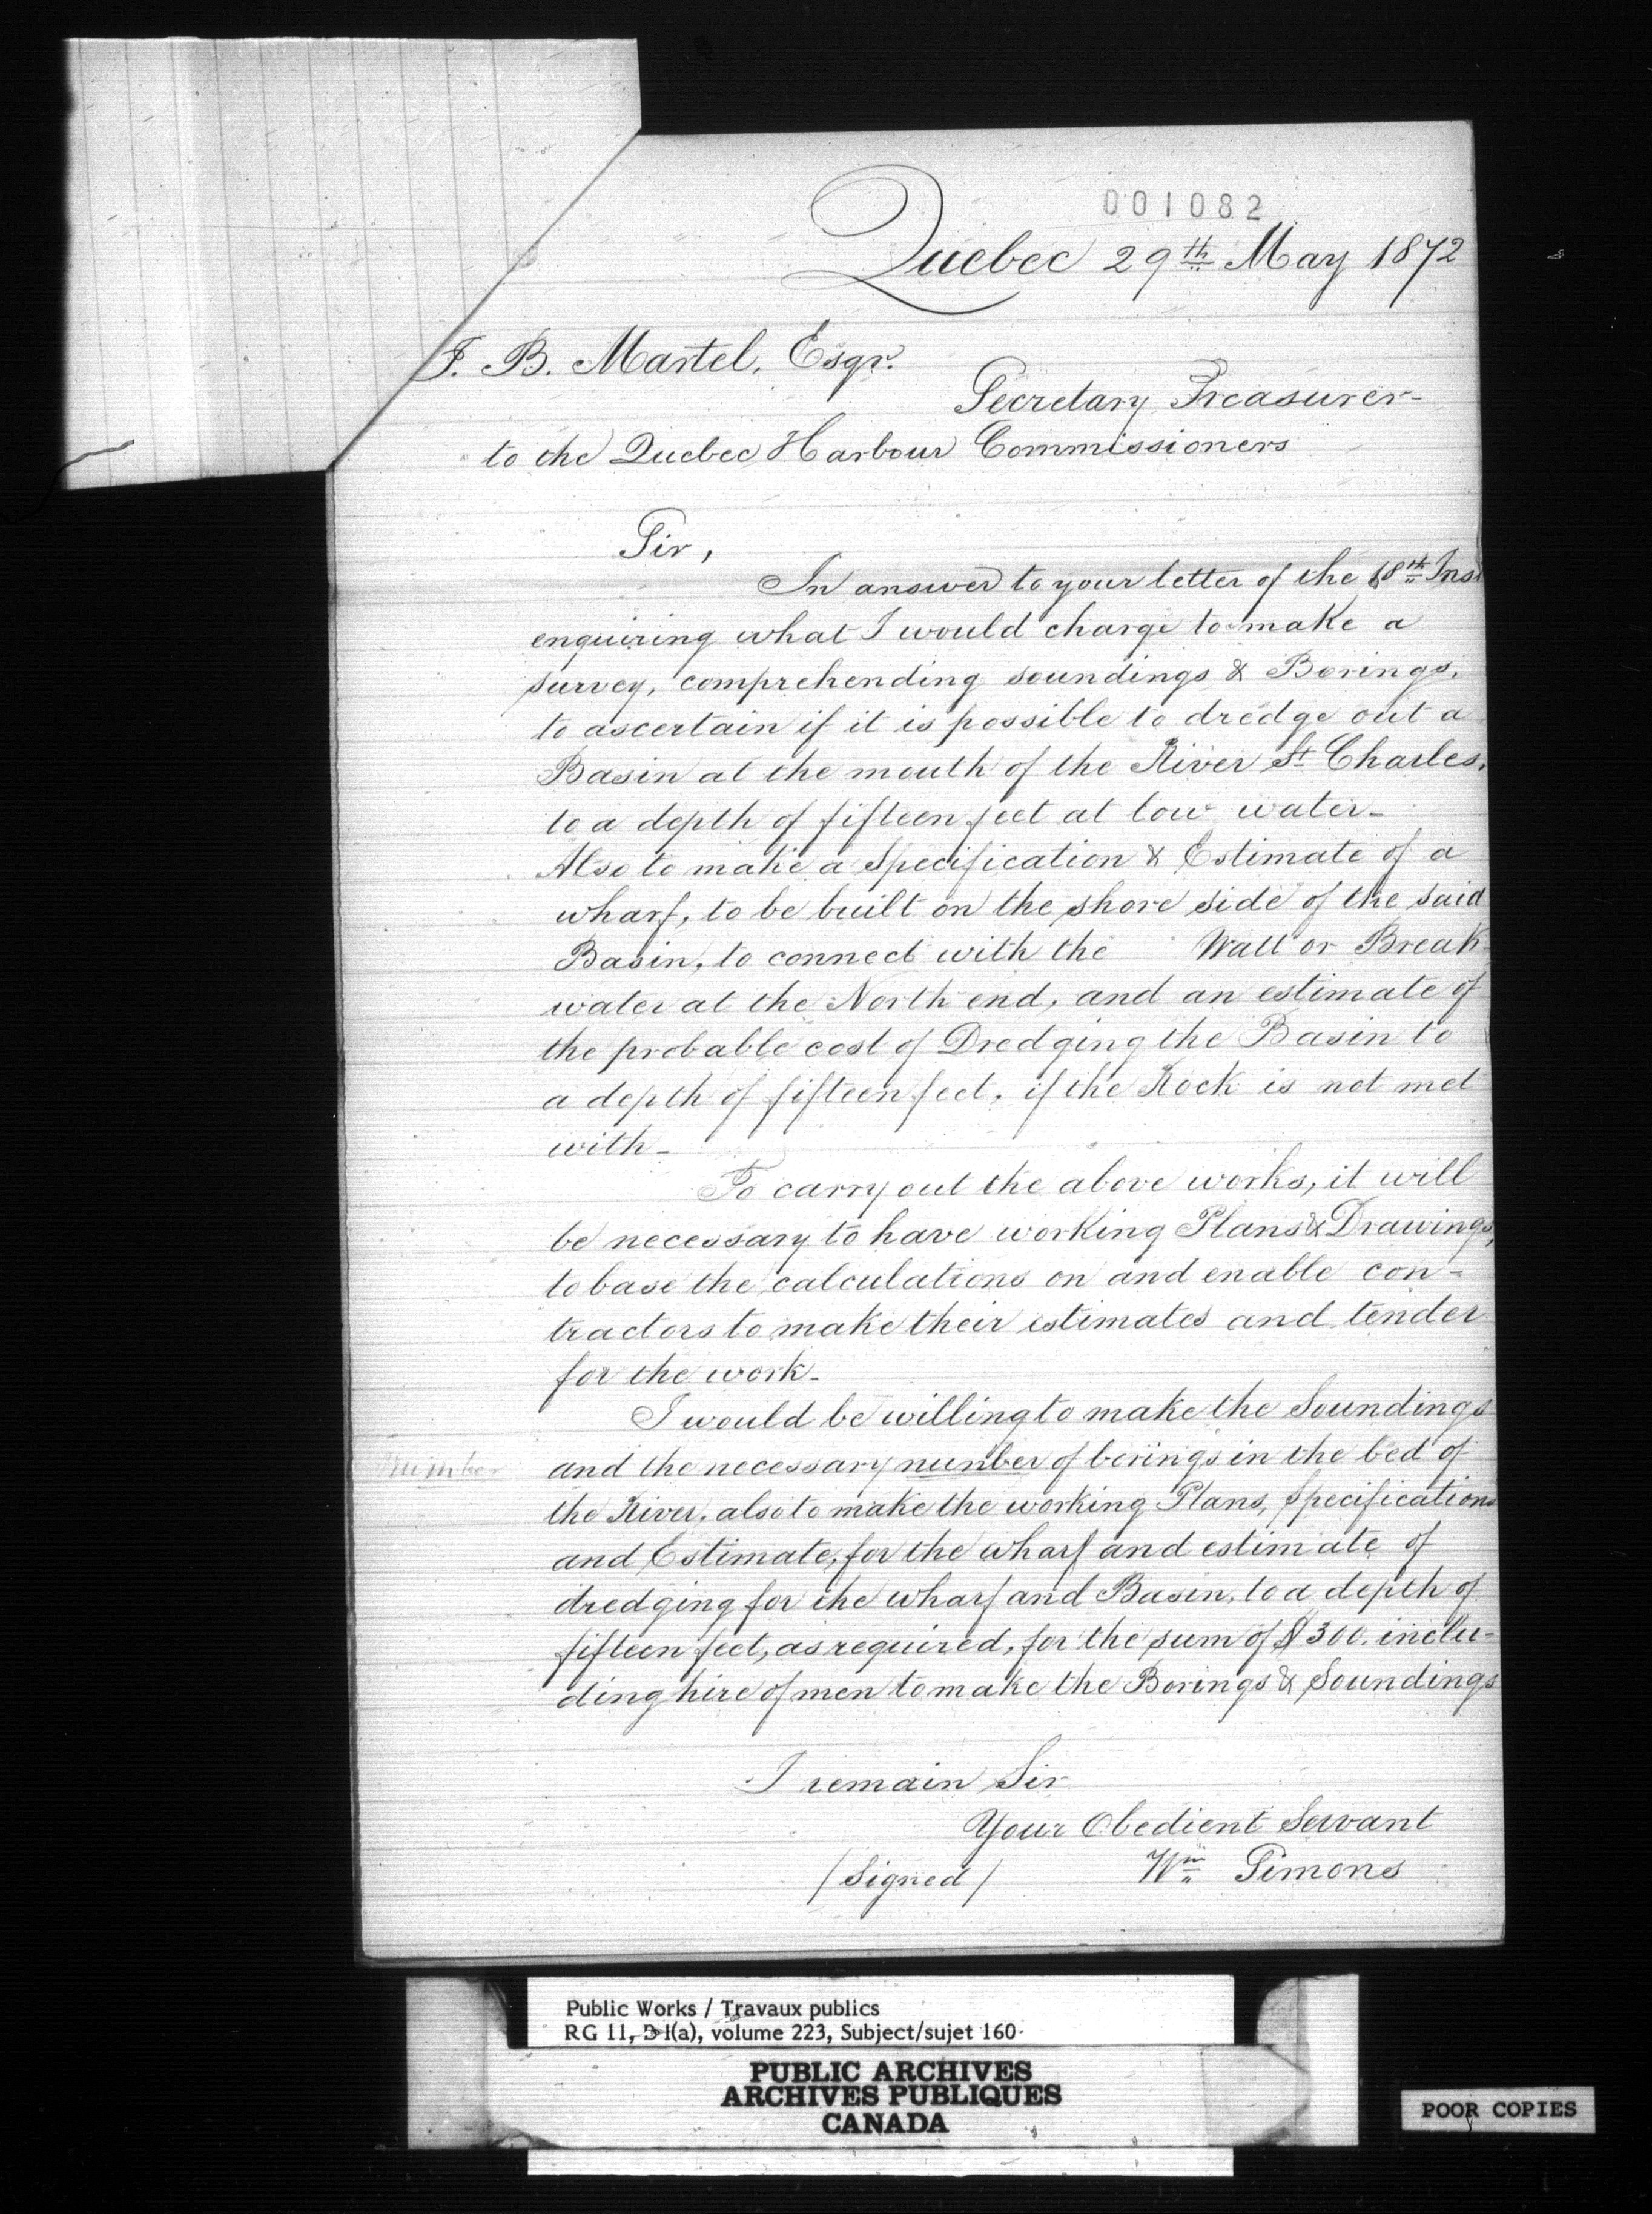 001082
Quebec 29th May 1872
J. B. Martel, Esqr.
Secretary Treasurer-
to the Quebec Harbour Commissioners
Sir,
In answer to your letter of the 18th Inst
enquiring what I would charge to make a
survey, comprehending soundings & Borings,
to ascertain if it is possible to dredge out a
Basin at the mouth of the River St Charles,
to a depth of fifteen feet at low water-
Also to make a Specification & Estimate of a
wharf, to be built on the shore side of the said
Basin, to connect with the Wall or Break-
water at the North end, and an estimate of
the probable cost of Dredging the Basin to
a depth of fifteen feet, if the Rock is not met
with-
To carry out the above works, it will
be necessary to have working Plans & Drawings,
to base the calculations on and enable con-
tractors to make their estimates and tender
for the work-
I would be willing to make the Soundings
Number
and the necessary number of borings in the bed of
the River, also to make the working Plans, Specifications
and Estimate, for the wharf and estimate of
dredging for the wharf and Basin, to a depth of
fifteen feet, as required, for the sum of $300. inclu-
ding hire of men to make the Borings & Soundings
I remain Sir
Your Obedient Servant
/Signed/ Wm Simons
Public Works / Travaux publics
RG 11, B1(a), volume 223, Subject/sujet 160
PUBLIC ARCHIVES
ARCHIVES PUBLIQUES
CANADA
POOR COPIES